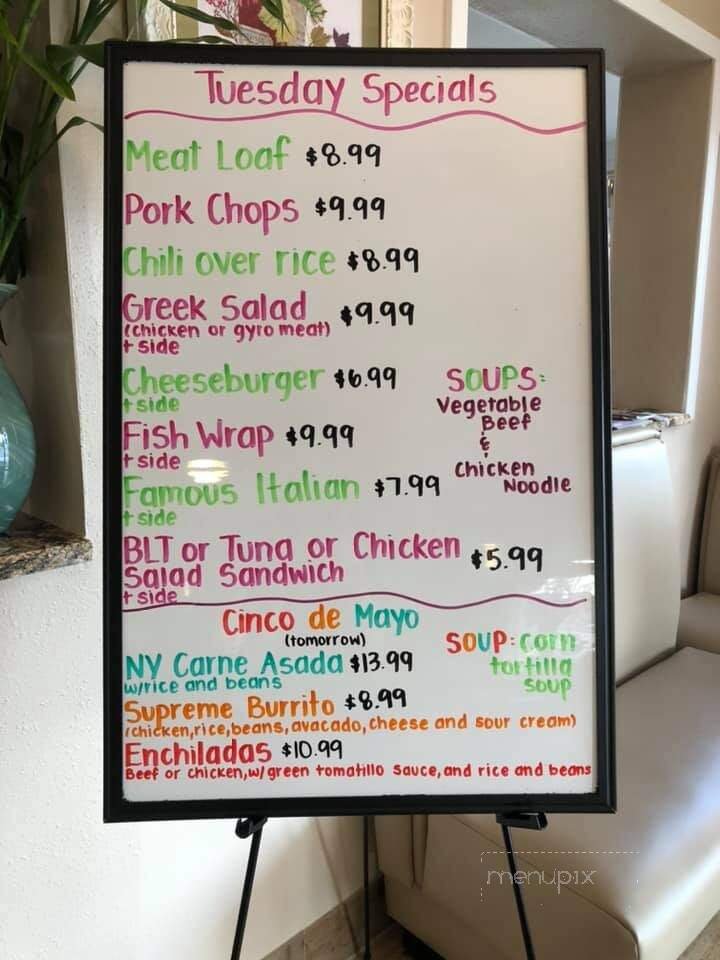 Tuesday Specials
Meat Loaf $8.99
Pork Chops $9.99
Chili over rice $8.99
Greek Salad $9.99
(chicken or gyro meat)
+ side
Cheeseburger $6.99
+ side
Fish Wrap $9.99
+ side
Famous Italian $7.99
+ side
BLT or Tuna or Chicken
Salad Sandwich $5.99
+ side
SOUPS:
Vegetable
Beef
&
Chicken
Noodle
Cinco de Mayo
(tomorrow)
NY Carne Asada $13.99
w/rice and beans
Supreme Burrito $8.99
(chicken,rice,beans,avacado,cheese and sour cream)
Enchiladas $10.99
Beef or chicken,w/green tomatillo sauce,and rice and beans
SOUP: corn
tortilla
soup
menupix